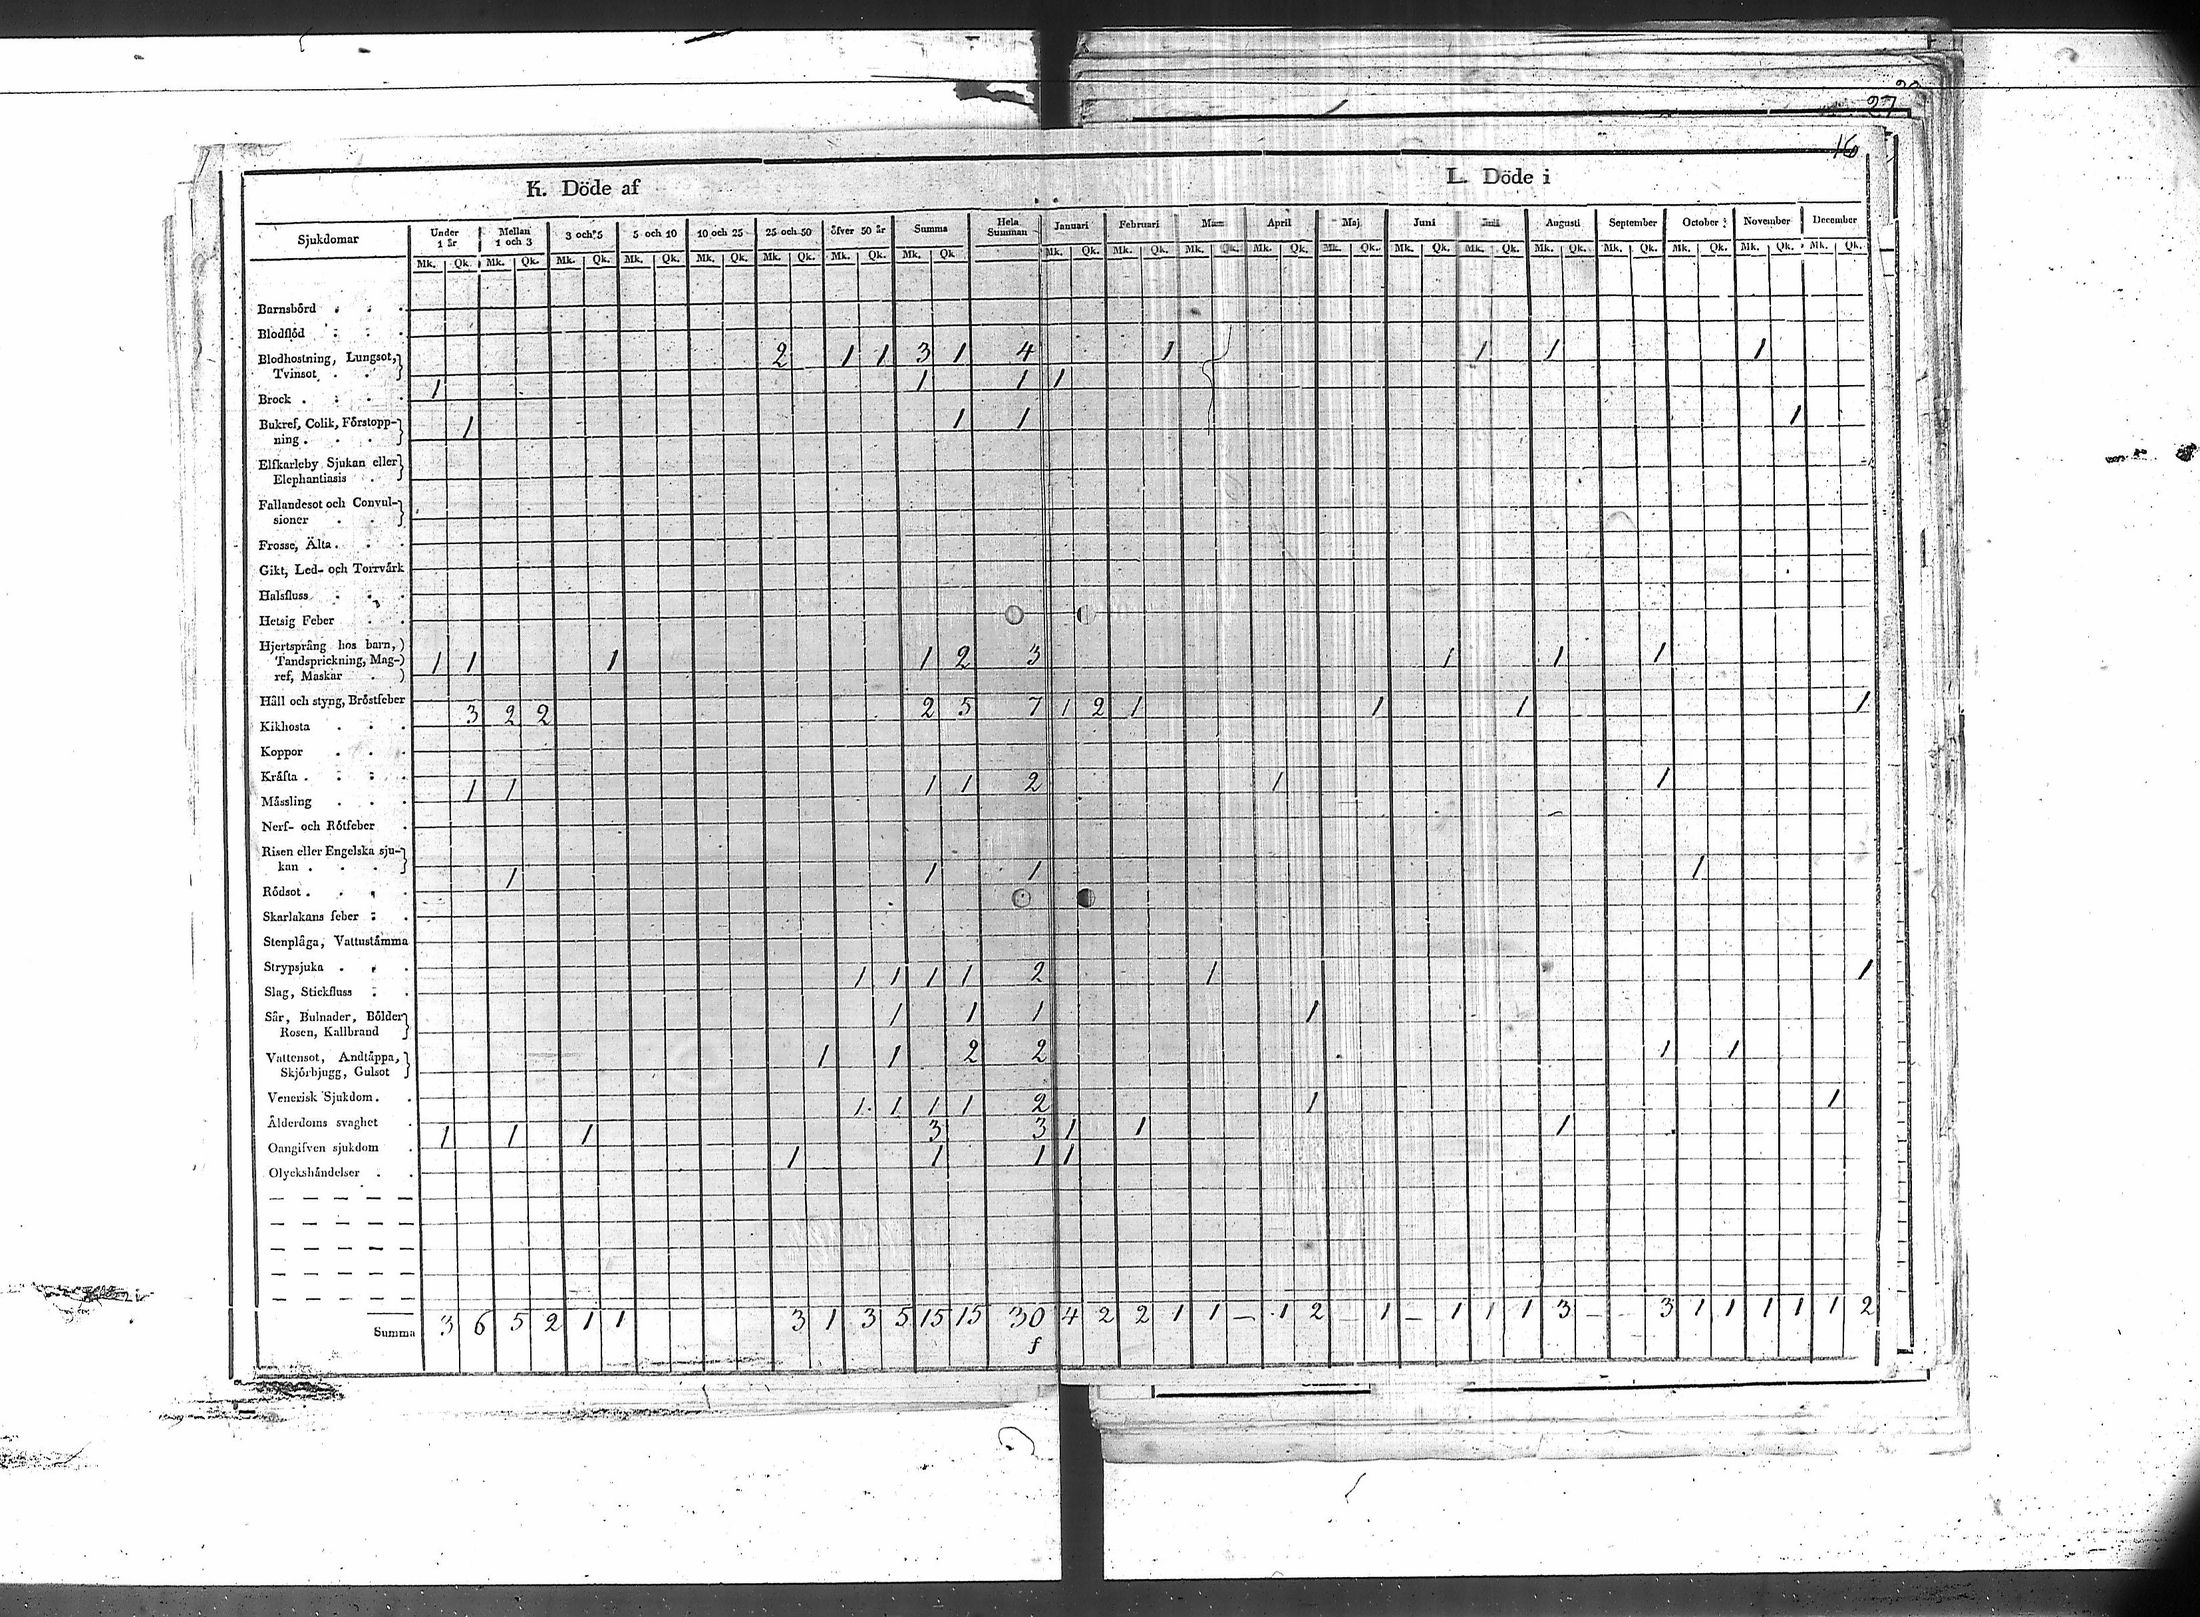 27
16
K. Döde af L. Döde i
Sjukdomar Under 1 år Mellan 1 och 3 3 och 5 5 och 10 10 och 25 25 och 50 öfver 50 år Summa Hela Summan Januari Februari Mars April Maj Juni Juli Augusti September October November December
Mk. Qk. Mk. Qk. Mk. Qk. Mk. Qk. Mk. Qk. Mk. Qk. Mk. Qk. Mk. Qk. Mk. Qk. Mk. Qk. Mk. Qk. Mk. Qk. Mk. Qk. Mk. Qk. Mk. Qk. Mk. Qk. Mk. Qk. Mk. Qk. Mk. Qk. Mk. Qk.
Barnsbörd
Blodflöd
Blodhostning, Lungsot, 2 1 1 3 1 4 1 1 1 1
Tvinsot
1 1 1 1
Brock
Bukref, Colik, Förstopp- 1 1 1 1
ning
Elfkarleby Sjukan eller
Elephantiasis
Fallandesot och Convul-
sioner
Frosse, Älta
Gikt, Led- och Torrvärk
Halsfluss
Hetsig Feber
Hjertsprång hos barn,
Tandsprickning, Mag- 1 1 1 1 2 3 1 1 1
ref, Maskar
Håll och styng, Bröstfeber
3 2 2 2 5 7 1 2 1 1 1 1
Kikhosta
Koppor
Kräfta
1 1 1 1 2 1 1
Mässling
Nerf- och Rötfeber
Risen eller Engelska sju-
kan
1 1 1 1
Rödsot
Skarlakans feber
Stenplåga, Vattustämma
Strypsjuka
1 1 1 1 2 1 1
Slag, Stickfluss
Sår, Bulnader, Bölder 1 1 1 1
Rosen, Kallbrand
Vattensot, Andtäppa, 1 1 2 2 1 1
Skjörbjugg, Gulsot
Venerisk Sjukdom
1 1 1 1 2 1 1
Ålderdoms svaghet
1 1 1 3 3 1 1 1
Oangifven sjukdom
1 1 1 1
Olyckshändelser
Summa 3 6 5 2 1 1 3 1 3 5 15 15 30 4 2 2 1 1 — 1 2 — 1 — 1 1 1 3 — 3 1 1 1 1 1 2